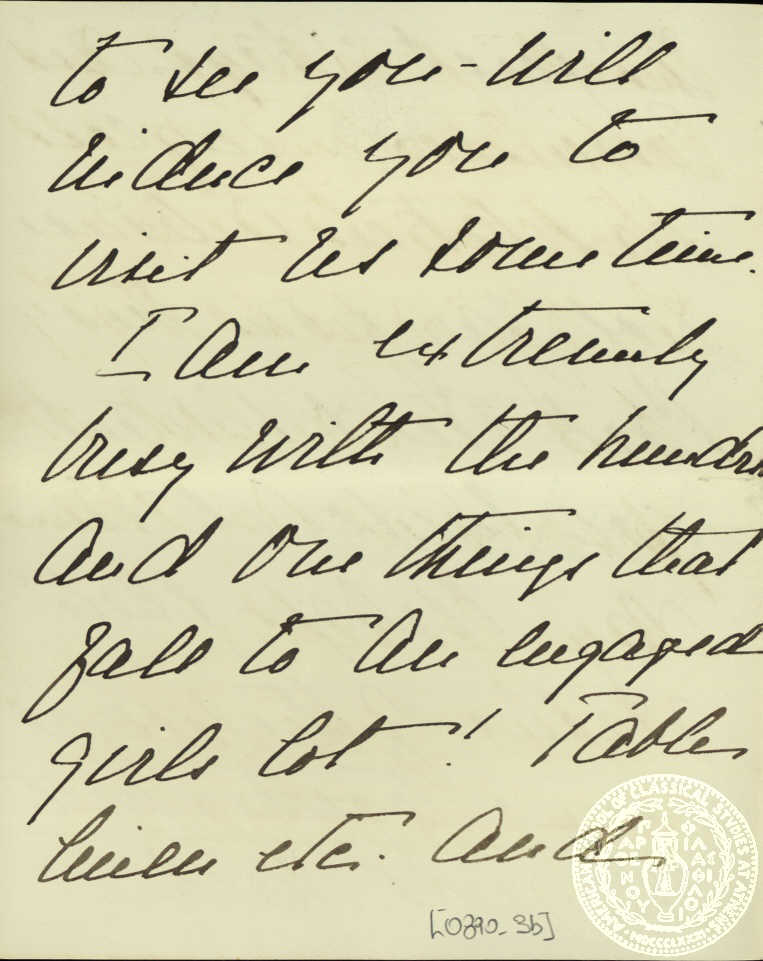 to see you - will
induce you to
visit us some time.
I am extremely
busy with the hundred
and one things that
fall to an engaged
girls lot! Table
linen etc. And
[0390_3b]
AMERICAN SCHOOL OF CLASSICAL STUDIES AT ATHENS
MDCCCLXXXI